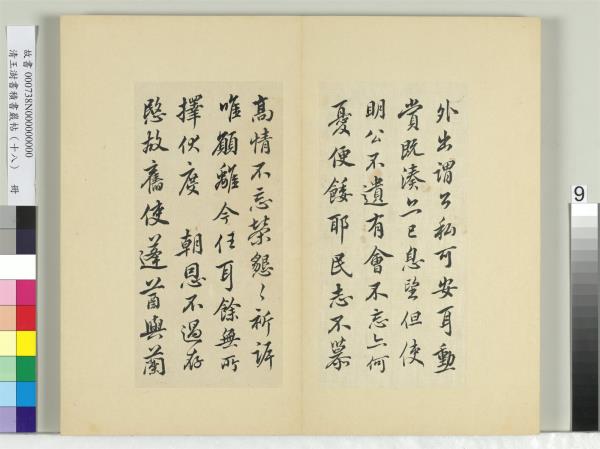 外出謂公私可安耳勳
賞既湊上已息望但使
明公不遺有會不忘亦何
憂便餒耶民志不慕
高情不忘榮懇〻祈訴
唯願離今任耳餘無所
擇伏度 朝恩不過存
愍故舊使蓬莤與蘭
故書 000738N000000000
清王澍書積書巖帖(十八) 冊
9